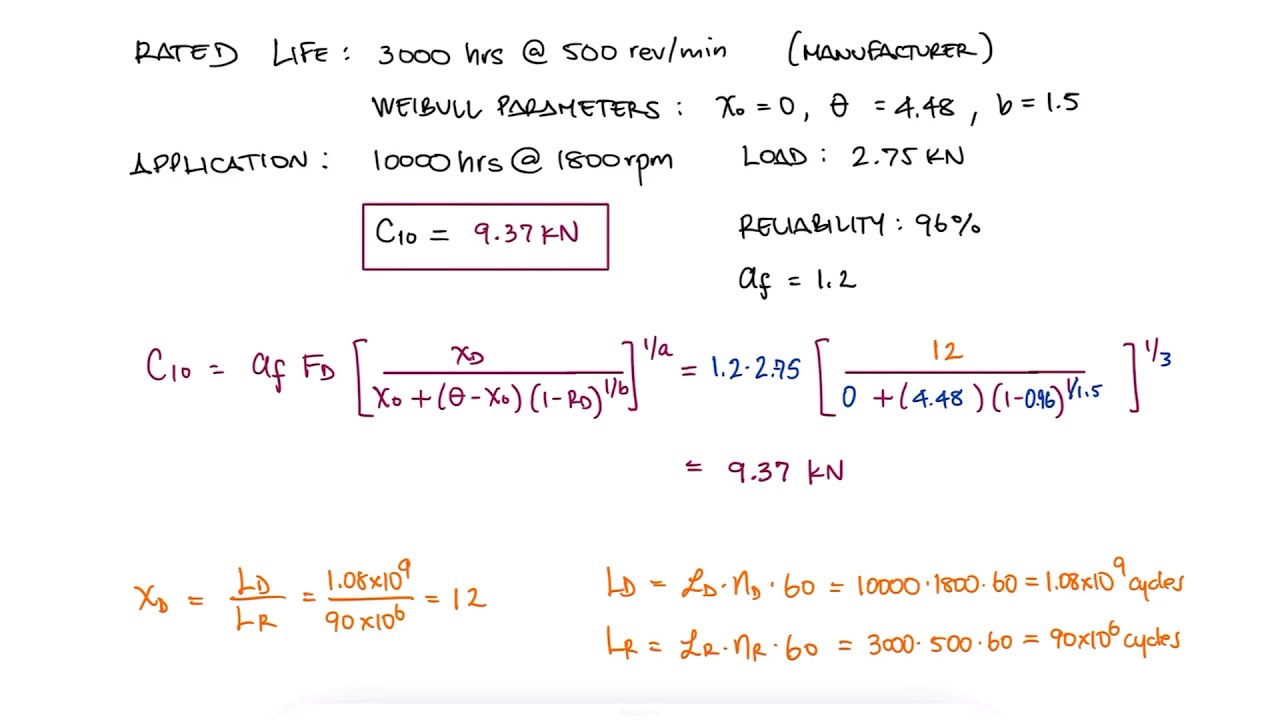 RATED LIFE: 3000 hrs @ 500 rev/min (MANUFACTURER)
WEIBULL PARAMETERS: x₀ = 0, θ = 4.48, b = 1.5
APPLICATION: 10000 hrs @ 1800 rpm LOAD: 2.75 KN
C₁₀ = 9.37 KN
RELIABILITY: 96%
af = 1.2
C₁₀ = af F_D [x_D / (x₀ + (θ - x₀)(1 - R_D)^(1/b))]^(1/a) = 1.2 · 2.75 [12 / (0 + (4.48)(1 - 0.96)^(1/1.5))]^(1/3)
= 9.37 KN
x_D = L_D / L_R = 1.08×10⁹ / 90×10⁶ = 12
L_D = ℒ_D · n_D · 60 = 10000 · 1800 · 60 = 1.08×10⁹ cycles
L_R = ℒ_R · n_R · 60 = 3000 · 500 · 60 = 90×10⁶ cycles